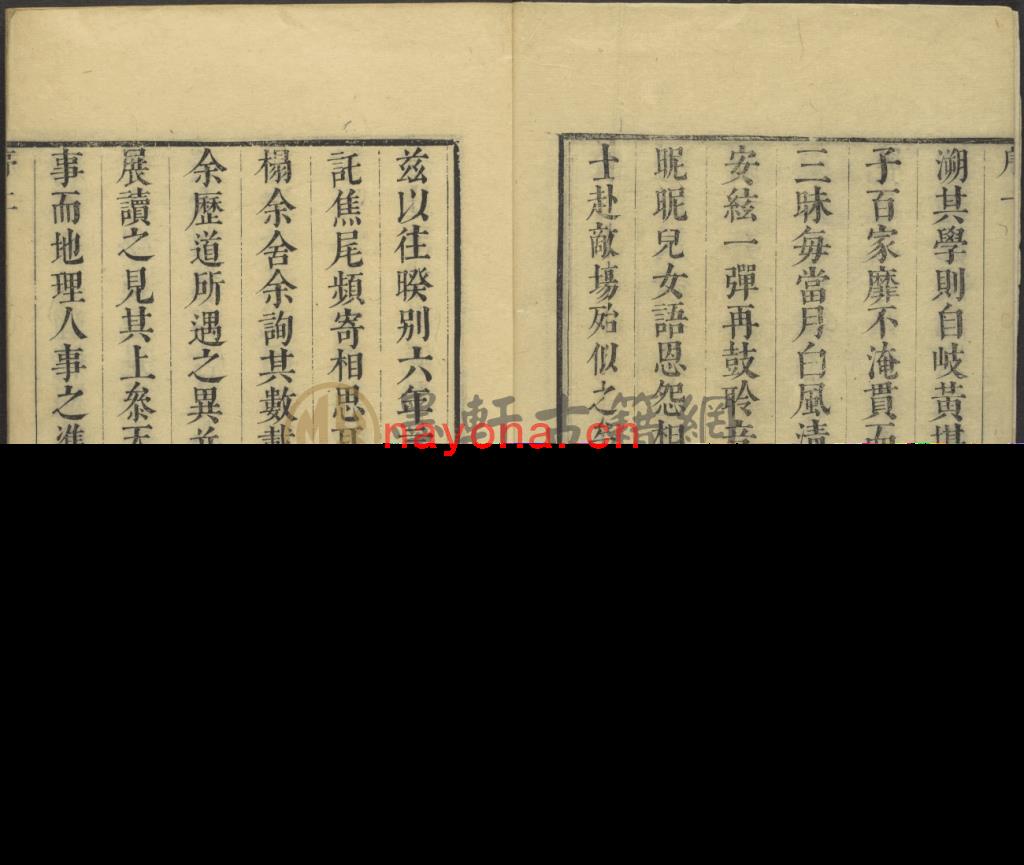 溯其學則自岐黃堪
子百家靡不淹貫而
三昧每當月白風清
安絃一彈再鼓聆音
昵昵兒女語恩怨相
士赴敵塲殆似之
兹以往睽别六年
託焦尾頻寄相思
榻余舍余詢其數載
余歷道所遇之異
展讀之見其上叅天
事而地理人事之準
墨軒古籍網
nayona. cn